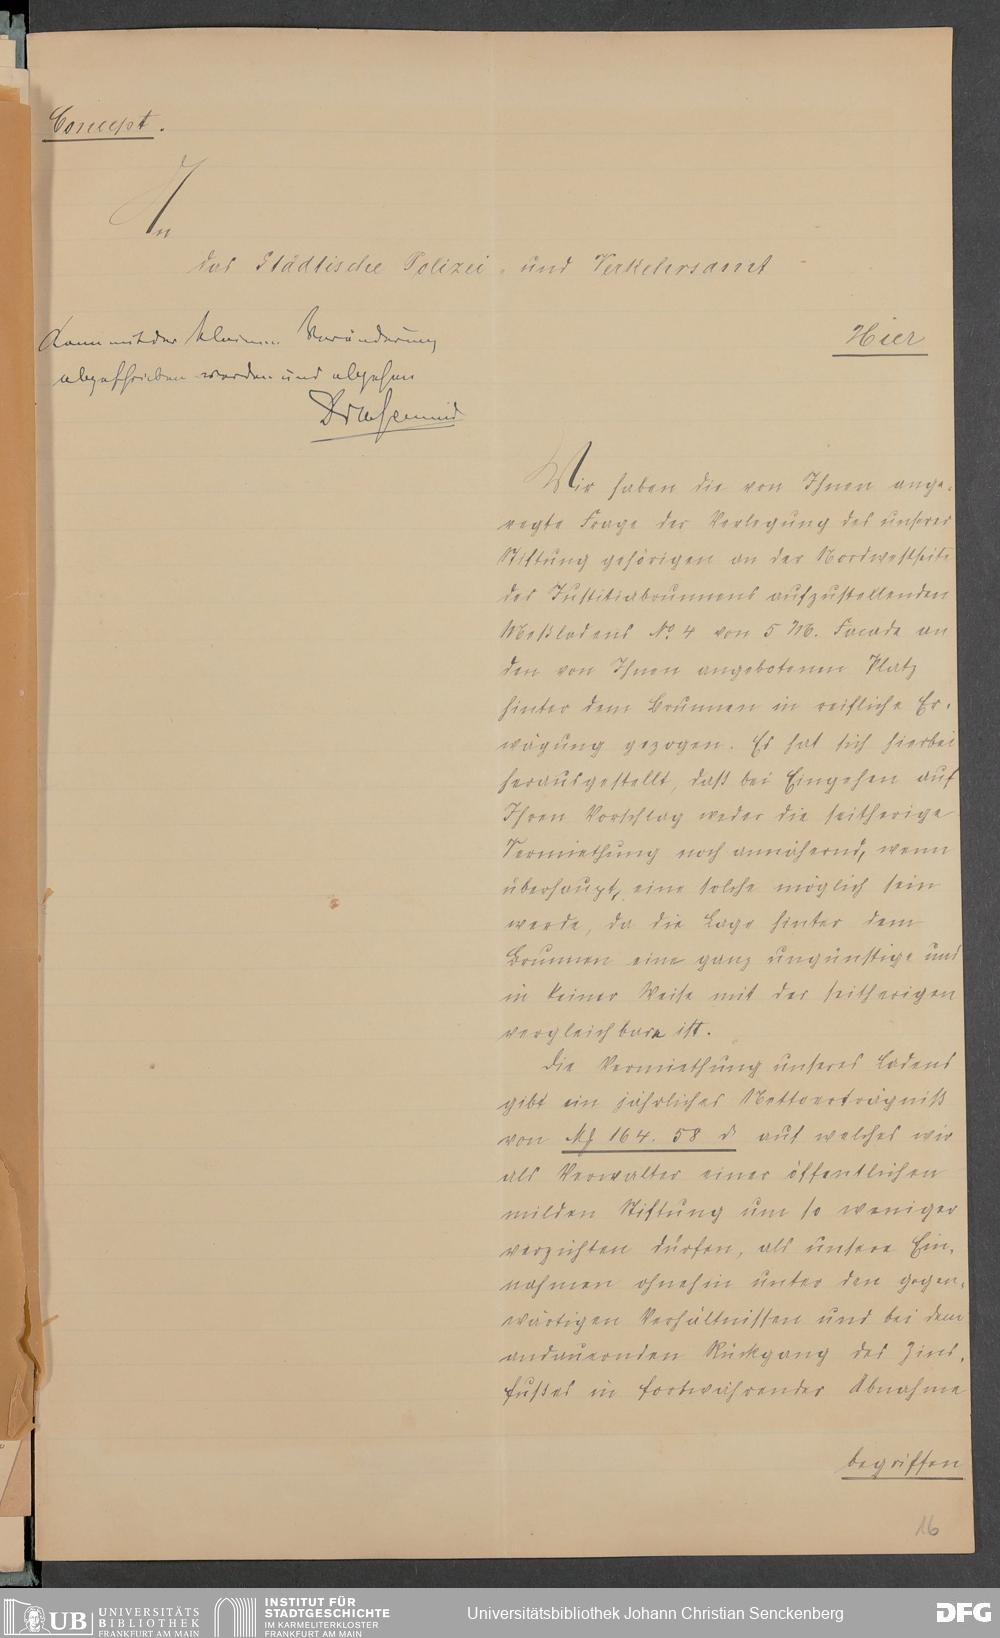 Concept.
An
das Städtische Polizei- und Verkehrsamt
Hier
Kann mit der kleinen Veränderung
abgeschrieben werden und abgehen
Wir haben die von Ihnen ange-
regte Frage der Verlegung des unserer
Stiftung gehörigen an der Nordwestseite
des Justitiabrunnens aufzustellenden
Meßladens No. 4 von 5 M. Facade an
den von Ihnen angebotenen Platz
hinter dem Brunnen in reifliche Er-
wägung gezogen. Es hat sich hierbei
herausgestellt, daß bei Eingehen auf
Ihren Vorschlag weder die seitherige
Vermiethung noch annähernd, wenn
überhaupt, eine solche möglich sein
werde, da die Lage hinter dem
Brunnen eine ganz ungünstige und
in keiner Weise mit der seitherigen
vergleichbare ist.
Die Vermiethung unseres Ladens
gibt ein jährliches Nettoerträgniß
von Mk 164. 58 d auf welches wir
als Verwalter einer öffentlichen
milden Stiftung um so weniger
verzichten dürfen, als unsere Ein-
nahmen ohnehin unter den gegen-
wärtigen Verhältnissen und bei dem
andauernden Rückgang des Zins-
fußes in fortwährender Abnahme
begriffen
16
UB UNIVERSITÄTS
BIBLIOTHEK
FRANKFURT AM MAIN
INSTITUT FÜR
STADTGESCHICHTE
IM KARMELITERKLOSTER
FRANKFURT AM MAIN
Universitätsbibliothek Johann Christian Senckenberg
DFG